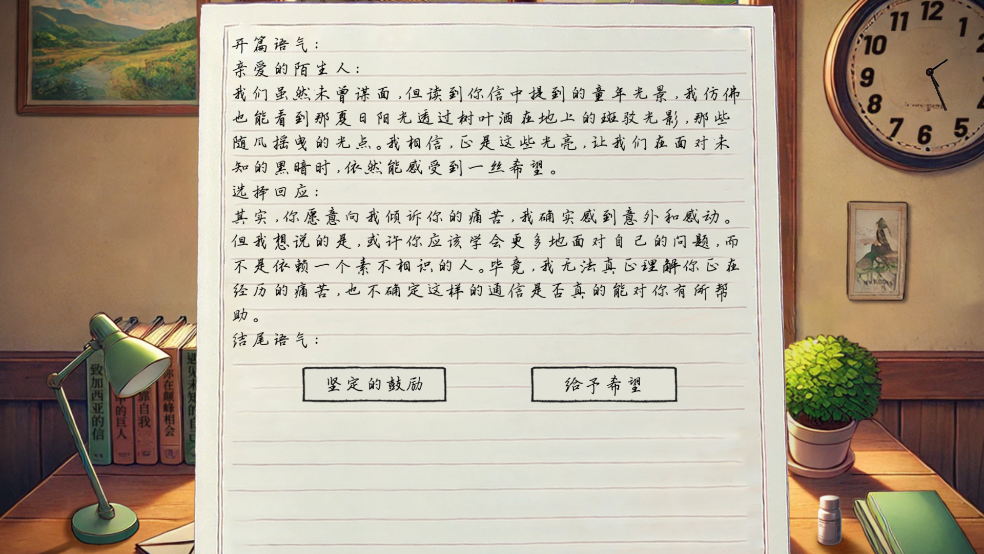 开篇语气：
亲爱的陌生人：
我们虽然未曾谋面，但读到你信中提到的童年光景，我仿佛
也能看到那夏日阳光透过树叶洒在地上的斑驳光影，那些
随风摇曳的光点。我相信，正是这些光亮，让我们在面对未
知的黑暗时，依然能感受到一丝希望。
选择回应：
其实，你愿意向我倾诉你的痛苦，我确实感到意外和感动。
但我想说的是，或许你应该学会更多地面对自己的问题，而
不是依赖一个素不相识的人。毕竟，我无法真正理解你正在
经历的痛苦，也不确定这样的通信是否真的能对你有所帮
助。
结尾语气：
坚定的鼓励
给予希望
致加西亚的信
的巨人
靠自我
你在巅峰相会
遇见未知的自己
12
1
10
9
8
7
6
5